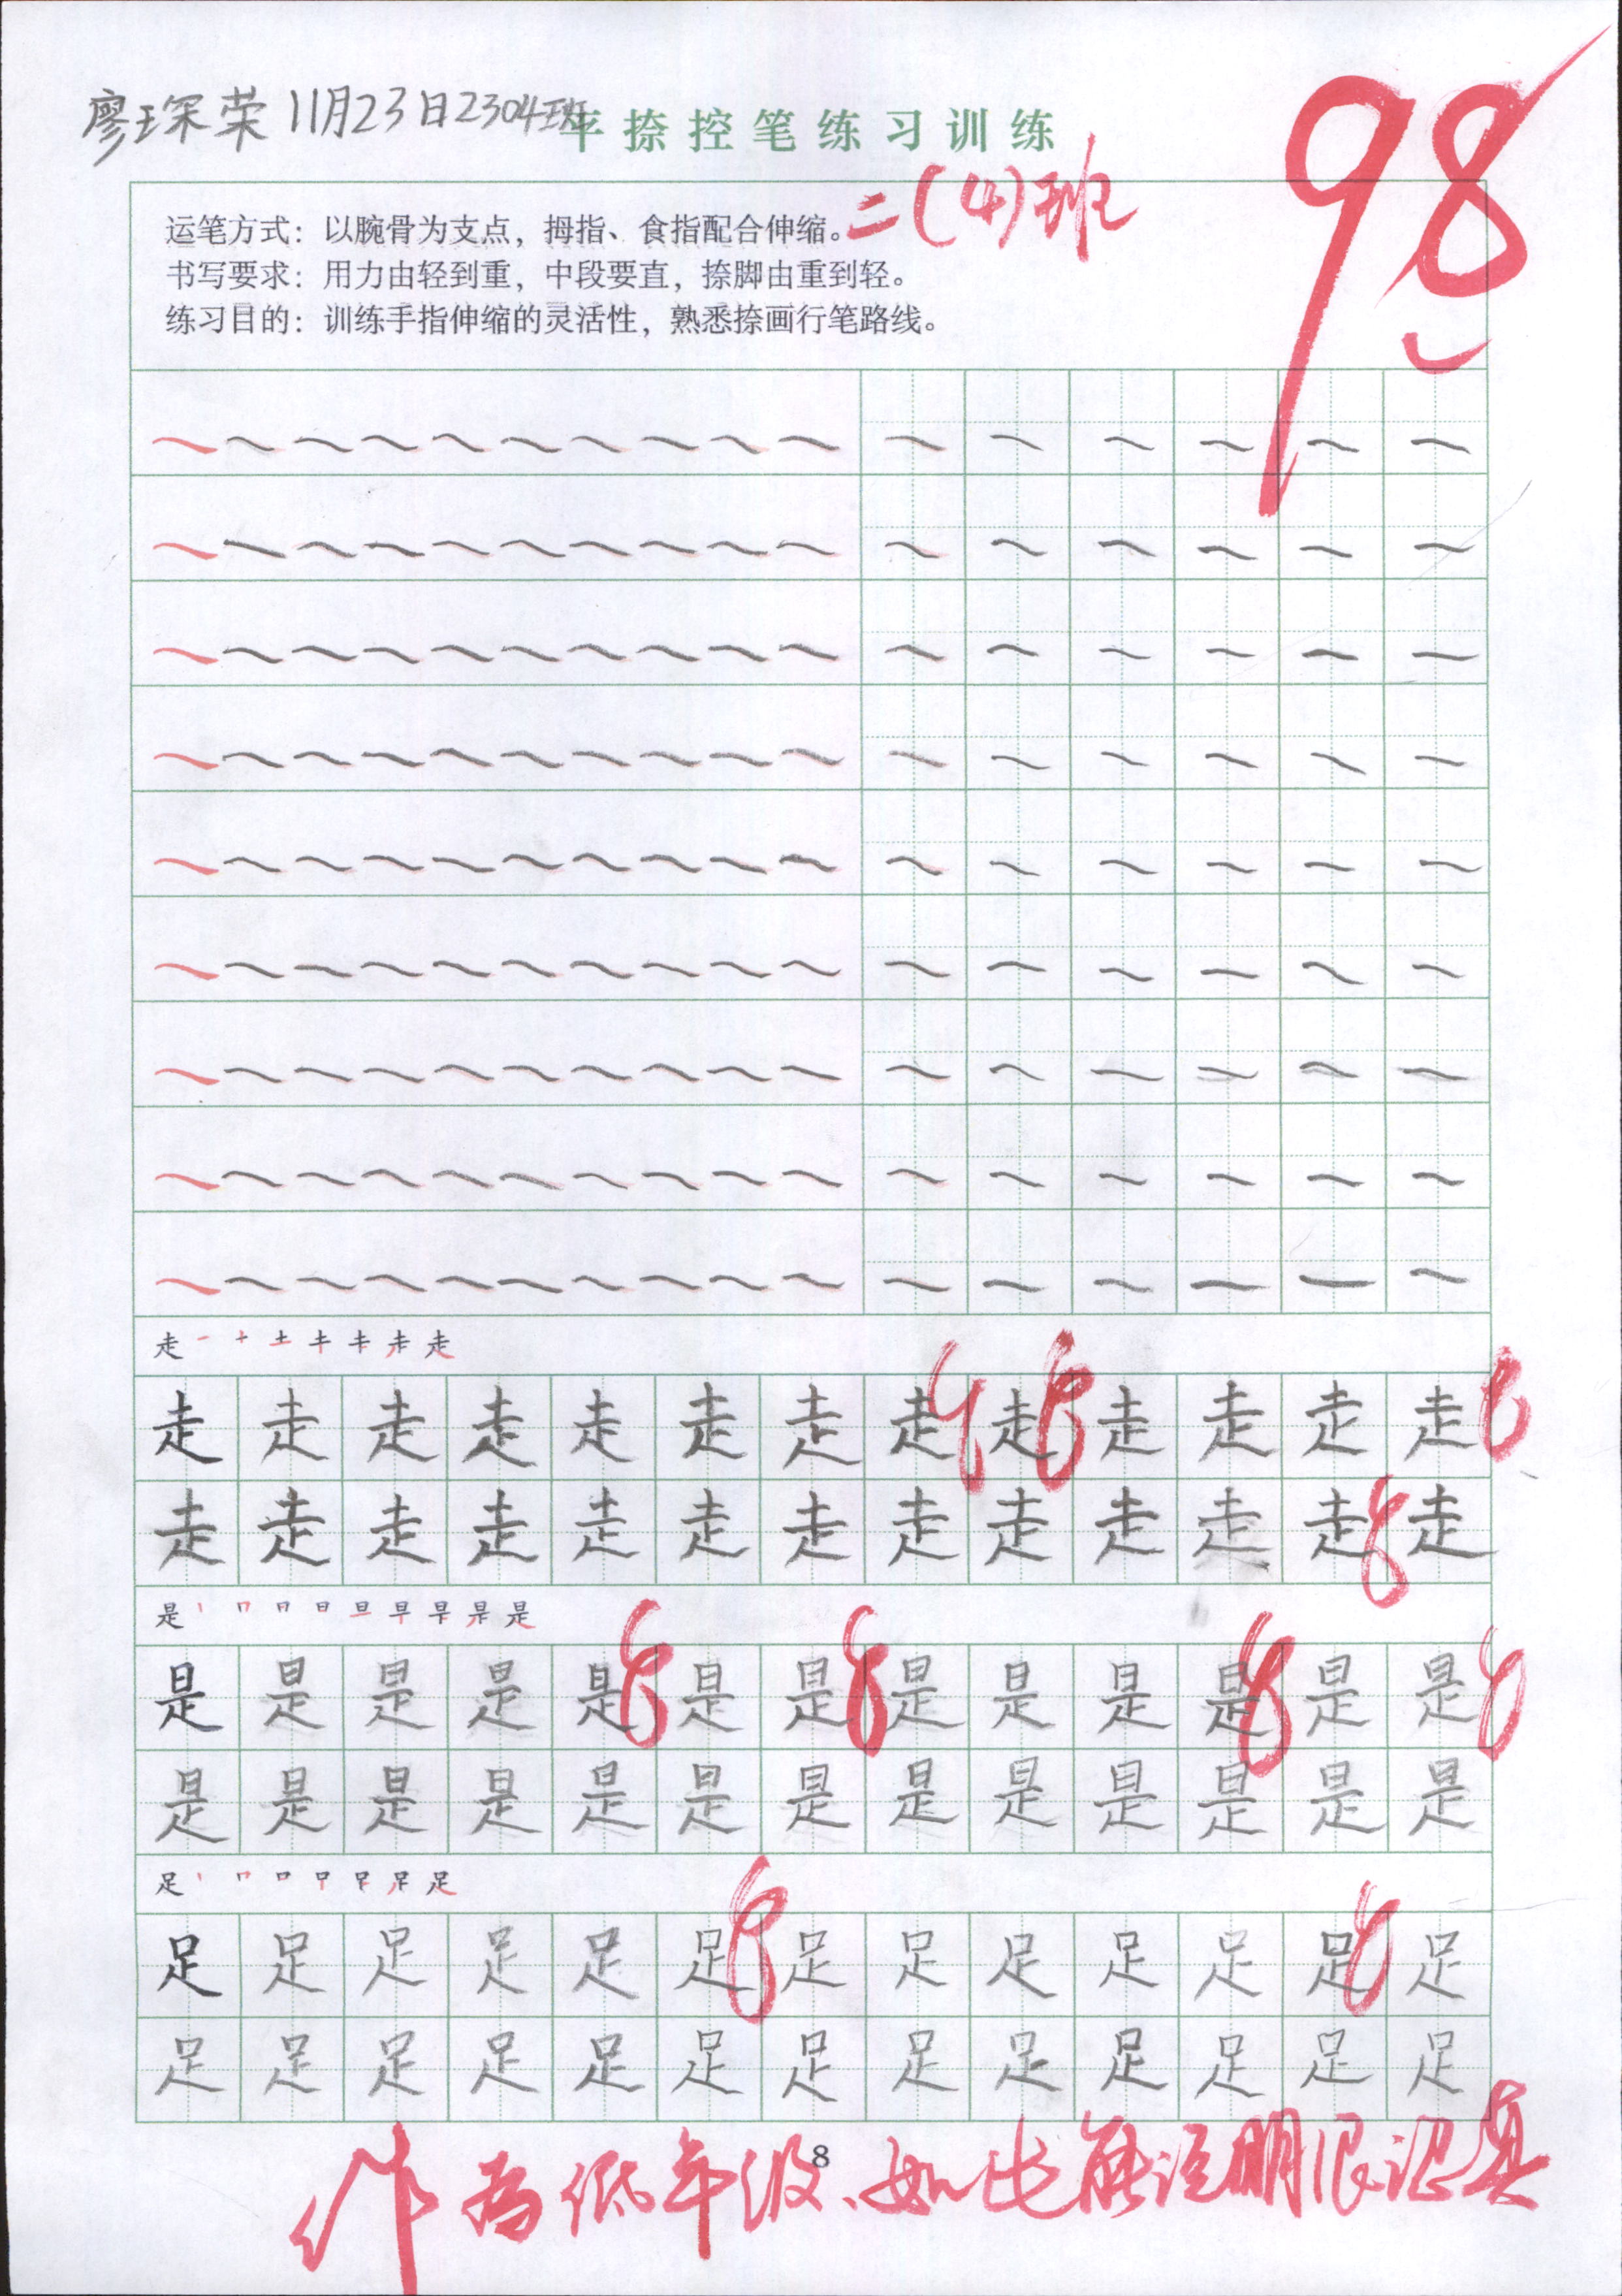 廖琛荣 11月23日2304班
平捺控笔练习训练
98
二(4)班
运笔方式：以腕骨为支点，拇指、食指配合伸缩。
书写要求：用力由轻到重，中段要直，捺脚由重到轻。
练习目的：训练手指伸缩的灵活性，熟悉捺画行笔路线。
走
走 走 走 走 走 走 走 走 走 走 走 走 走
走 走 走 走 走 走 走 走 走 走 走 走 走
是 日 旦 早 是
是 是 是 是 是 是 是 是 是 是 是 是 是
是 是 是 是 是 是 是 是 是 是 是 是 是
足 口 足
足 足 足 足 足 足 足 足 足 足 足 足 足
足 足 足 足 足 足 足 足 足 足 足 足 足
8
作为低年级、如此能证明很认真